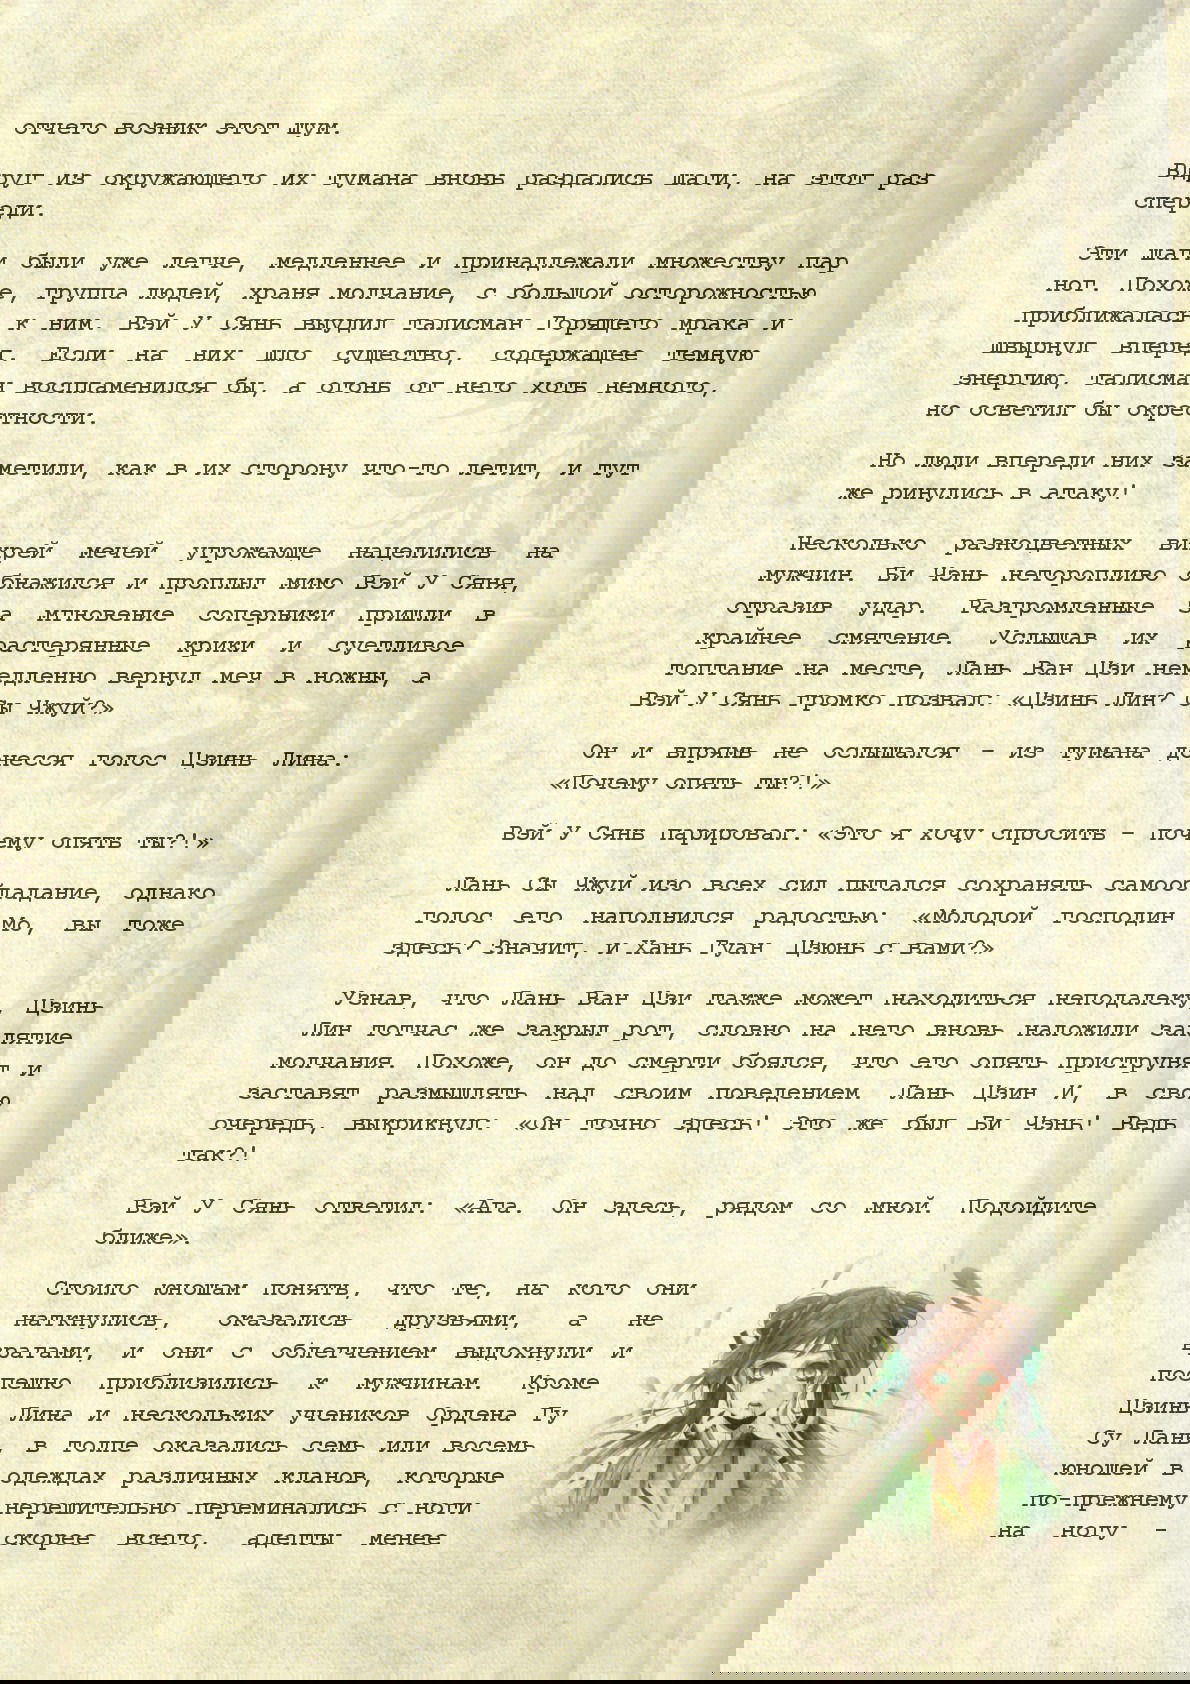 отчего возник этот шум.
Вдруг из окружающего их тумана вновь раздались шаги, на этот раз
спереди.
Эти шаги были уже легче, медленнее и принадлежали множеству пар
ног. Похоже, группа людей, храня молчание, с большой осторожностью
приближалась к ним. Вэй У Сянь выудил талисман Горящего мрака и
швырнул вперед. Если на них шло существо, содержащее темную
энергию, талисман воспламенился бы, а огонь от него хоть немного,
но осветил бы окрестности.
Но люди впереди них заметили, как в их сторону что-то летит, и тут
же ринулись в атаку!
Несколько разноцветных вихрей мечей угрожающе нацелились на
мужчин. Би Чэнь неторопливо обнажился и проплыл мимо Вэй У Сяня,
отразив удар. Разгромленные за мгновение соперники пришли в
крайнее смятение. Услышав их растерянные крики и суетливое
топтание на месте, Лань Ван Цзи немедленно вернул меч в ножны, а
Вэй У Сянь громко позвал: «Цзинь Лин? Сы Чжуй?»
Он и впрямь не ослышался – из тумана донесся голос Цзинь Лина:
«Почему опять ты?!»
Вэй У Сянь парировал: «Это я хочу спросить – почему опять ты?!»
Лань Сы Чжуй изо всех сил пытался сохранять самообладание, однако
голос его наполнился радостью: «Молодой господин Мо, вы тоже
здесь? Значит, и Хань Гуан Цзюнь с вами?»
Узнав, что Лань Ван Цзи также может находиться неподалеку, Цзинь
Лин тотчас же закрыл рот, словно на него вновь наложили заклятие
молчания. Похоже, он до смерти боялся, что его опять приструнят и
заставят размышлять над своим поведением. Лань Цзин И, в свою
очередь, выкрикнул: «Он точно здесь! Это же был Би Чэнь! Ведь
так?!
Вэй У Сянь ответил: «Ага. Он здесь, рядом со мной. Подойдите
ближе».
Стоило юношам понять, что те, на кого они
наткнулись, оказались друзьями, а не
врагами, и они с облегчением выдохнули и
поспешно приблизились к мужчинам. Кроме
Цзинь Лина и нескольких учеников Ордена Гу
Су Лань, в толпе оказались семь или восемь
юношей в одеждах различных кланов, которые
по-прежнему нерешительно переминались с ноги
на ногу – скорее всего, адепты менее